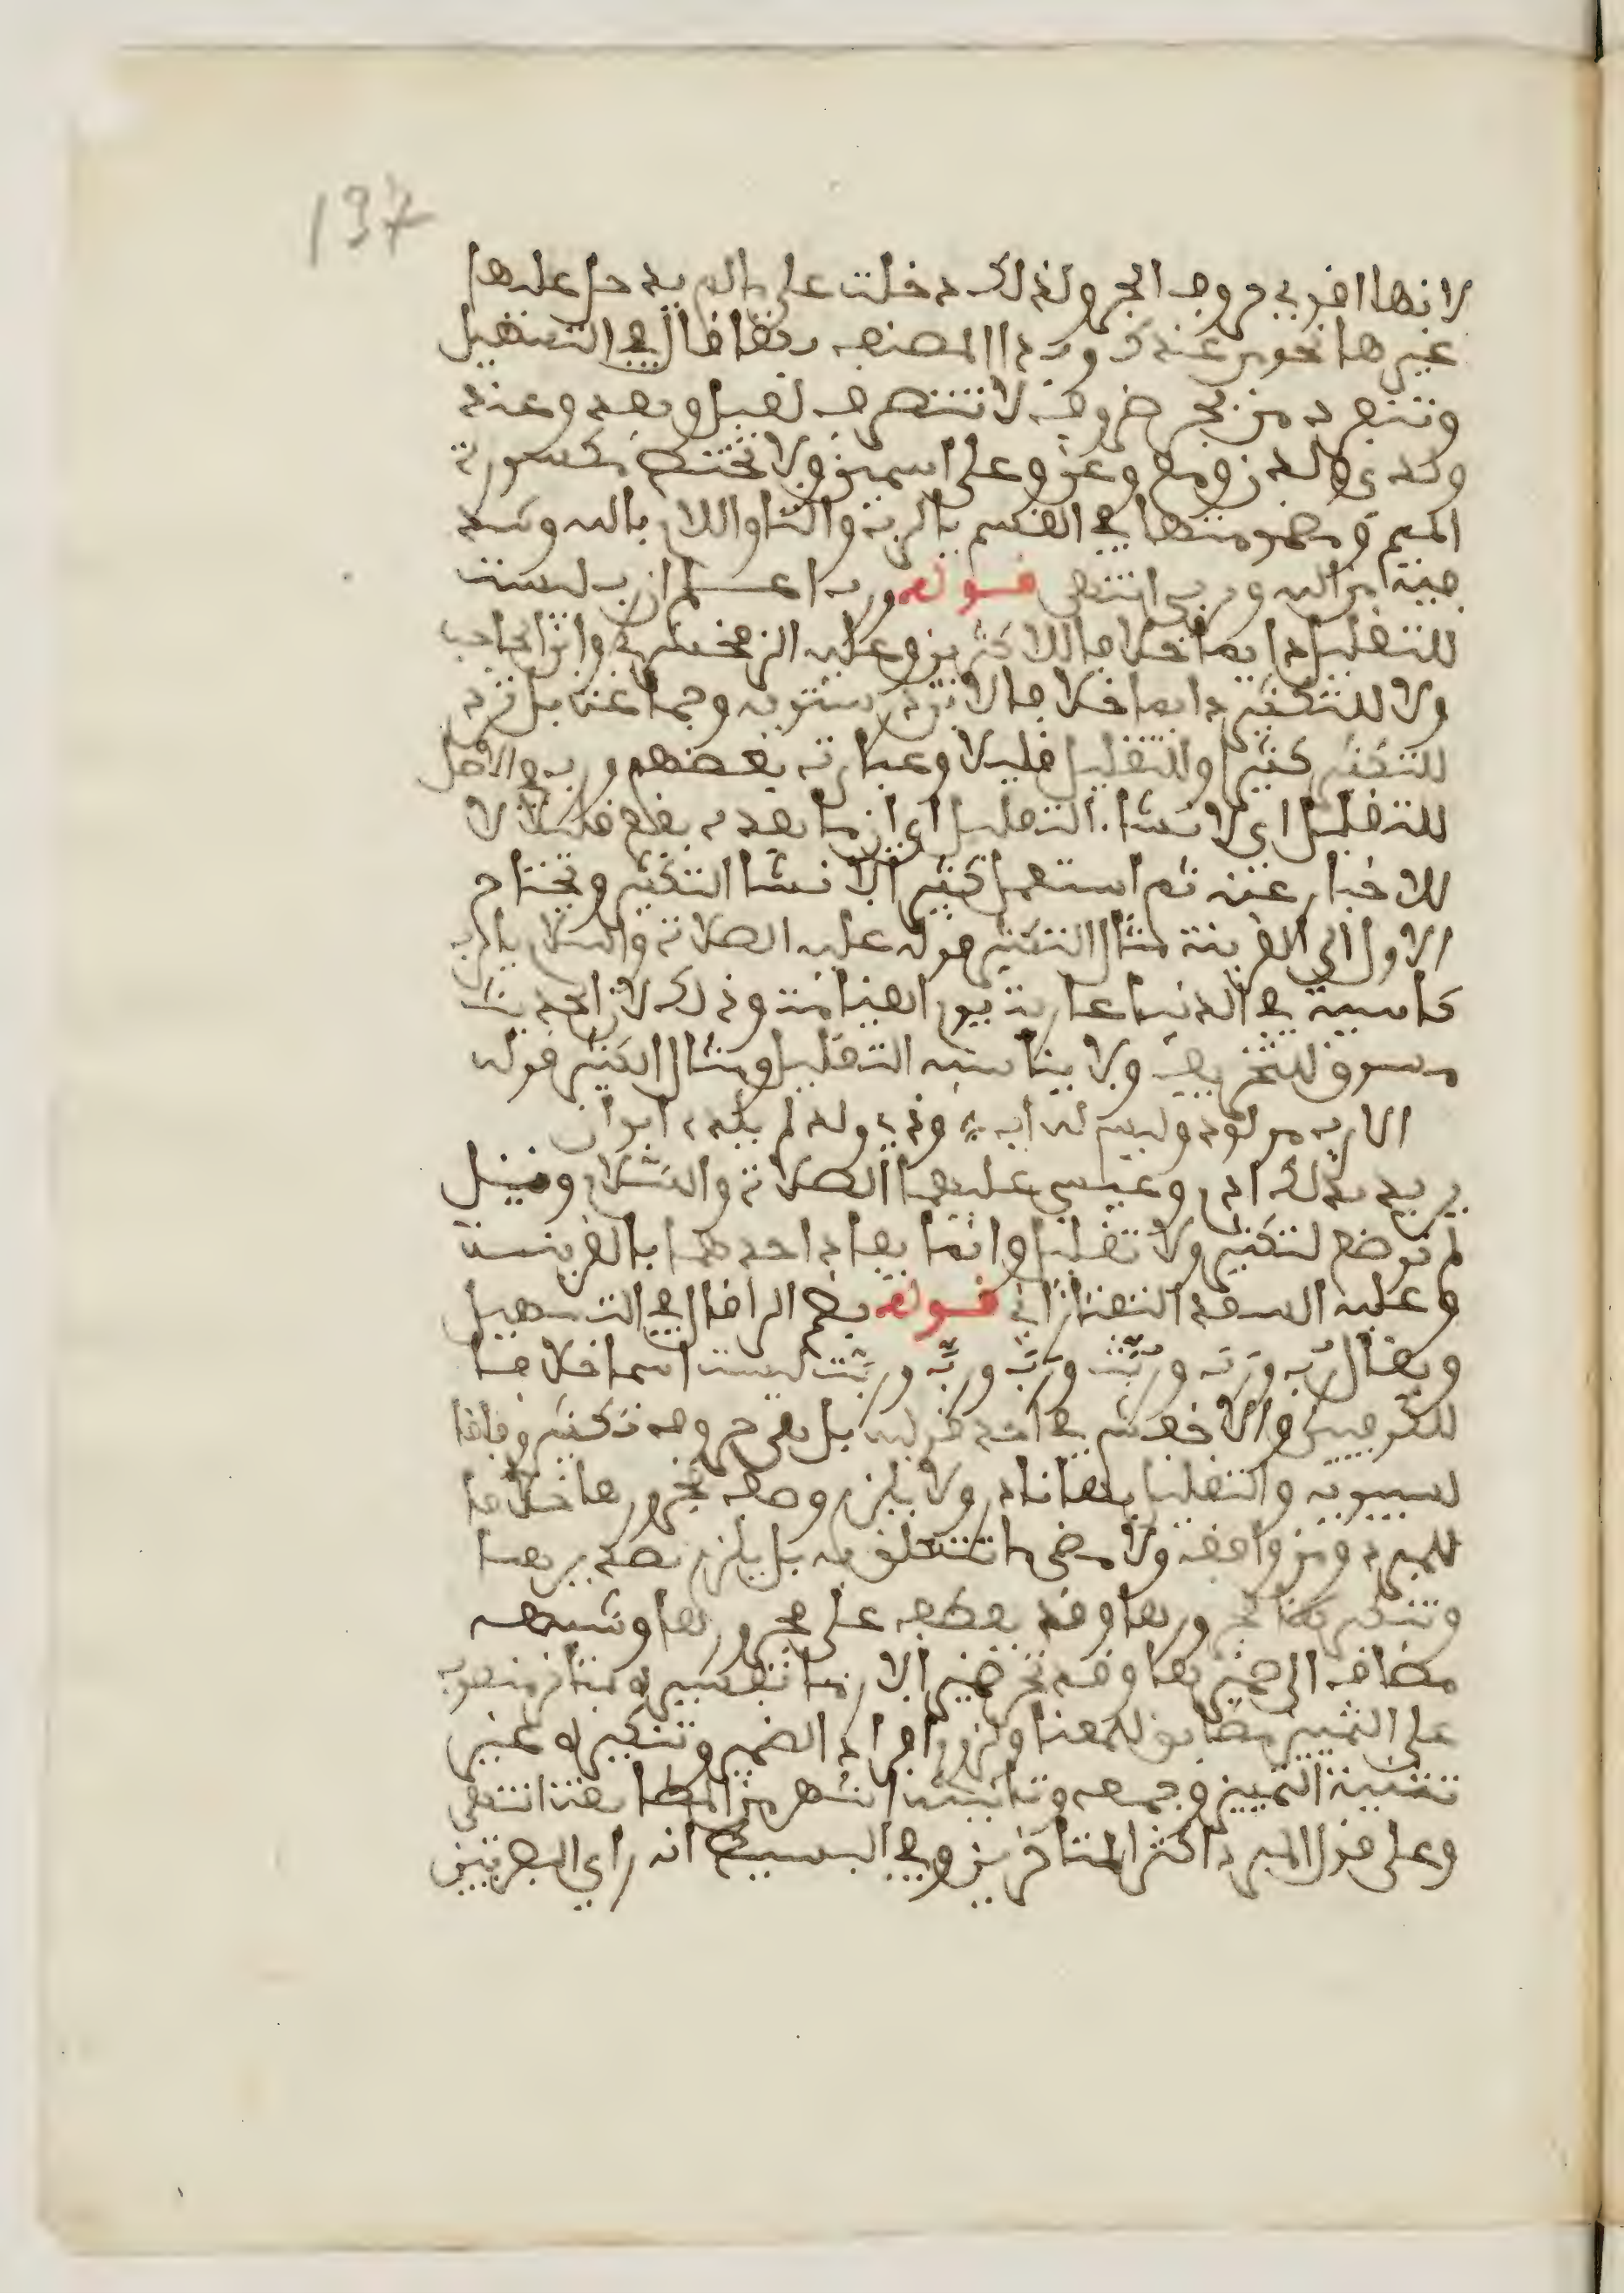 137
لانها اقوى حروف الجر ولذلك دخلت على ما لم يدخل عليها
غيرها نحو من عندك ومراد المصنف بقط قال في التسهيل
وتنفرد من بجر ظروف لا تتصرف لقبل وبعد وعند
ولدى ولدن ومع وعن وعلى اسمين ولا تختص مكسورة
الميم ومضمومتها في القسم بالرب والتا واللام بالله وشذ
فيه من الله وربي انتهى قوله ورب اعلم ان رب ليست
للتقليل دايما خلافا للاكثرين وعليه الزمخشري وابن الحاجب
ولا للتكثير دايما خلافا لابن درستويه وجماعة بل ترد
للتكثير كثيرا وللتقليل قليلا وعبارة بعضهم ورب في الاصل
للتقليل اي لانشاء التقليل اي ان ما بعده يقع قليلا لا
للاخبار عنه ثم استعمل كثيرا لانشا التكثير ويحتاج
الاول الى القرينة مثال التكثير قوله عليه الصلاة والسلام يا رب
كاسية في الدنيا عارية يوم القيامة وذلك لان الحديث
مسوق للتخويف ولا يناسبه التقليل ومثال الكثير قوله
الا رب مولود وليس له اب وذي ولد لم يلده ابوان
يريد بذلك ادم وعيسى عليهما الصلاة والسلام وقيل
لم توضع لتكثير ولا تقليل وانما يفاد احدهما بالقرينة
وعليه السعد التفتازاني قوله بضم الرا قال في التسهيل
ويقال رب ورب وربت ورب ورب وربت ليست اسما خلافا
للكوفيين والاخفش في احد قوليه بل هي حرف تكثير وفاقا
لسيبويه والتقليل بها نادر ولا يلزم وصف مجرورها خلافا
للمبرد ومن وافقه ولا مضى ما تتعلق به بل يلزم تصديرها
وتنكير مجرورها وقد يعطف على مجرورها وشبهه
مضاف الى ضميرهما وقد تجر ضميرا لازما تفسيره بمتاخر منصوب
على التمييز مطابق للمعنا ولزوم افراد الضمير وتنكيره عند
تثنية التمييز وجمعه وتانيثه اشهر من المطابقة انتهى
وعلى قول المبرد اكثر المتاخرين وفي البسيط انه راي البصريين